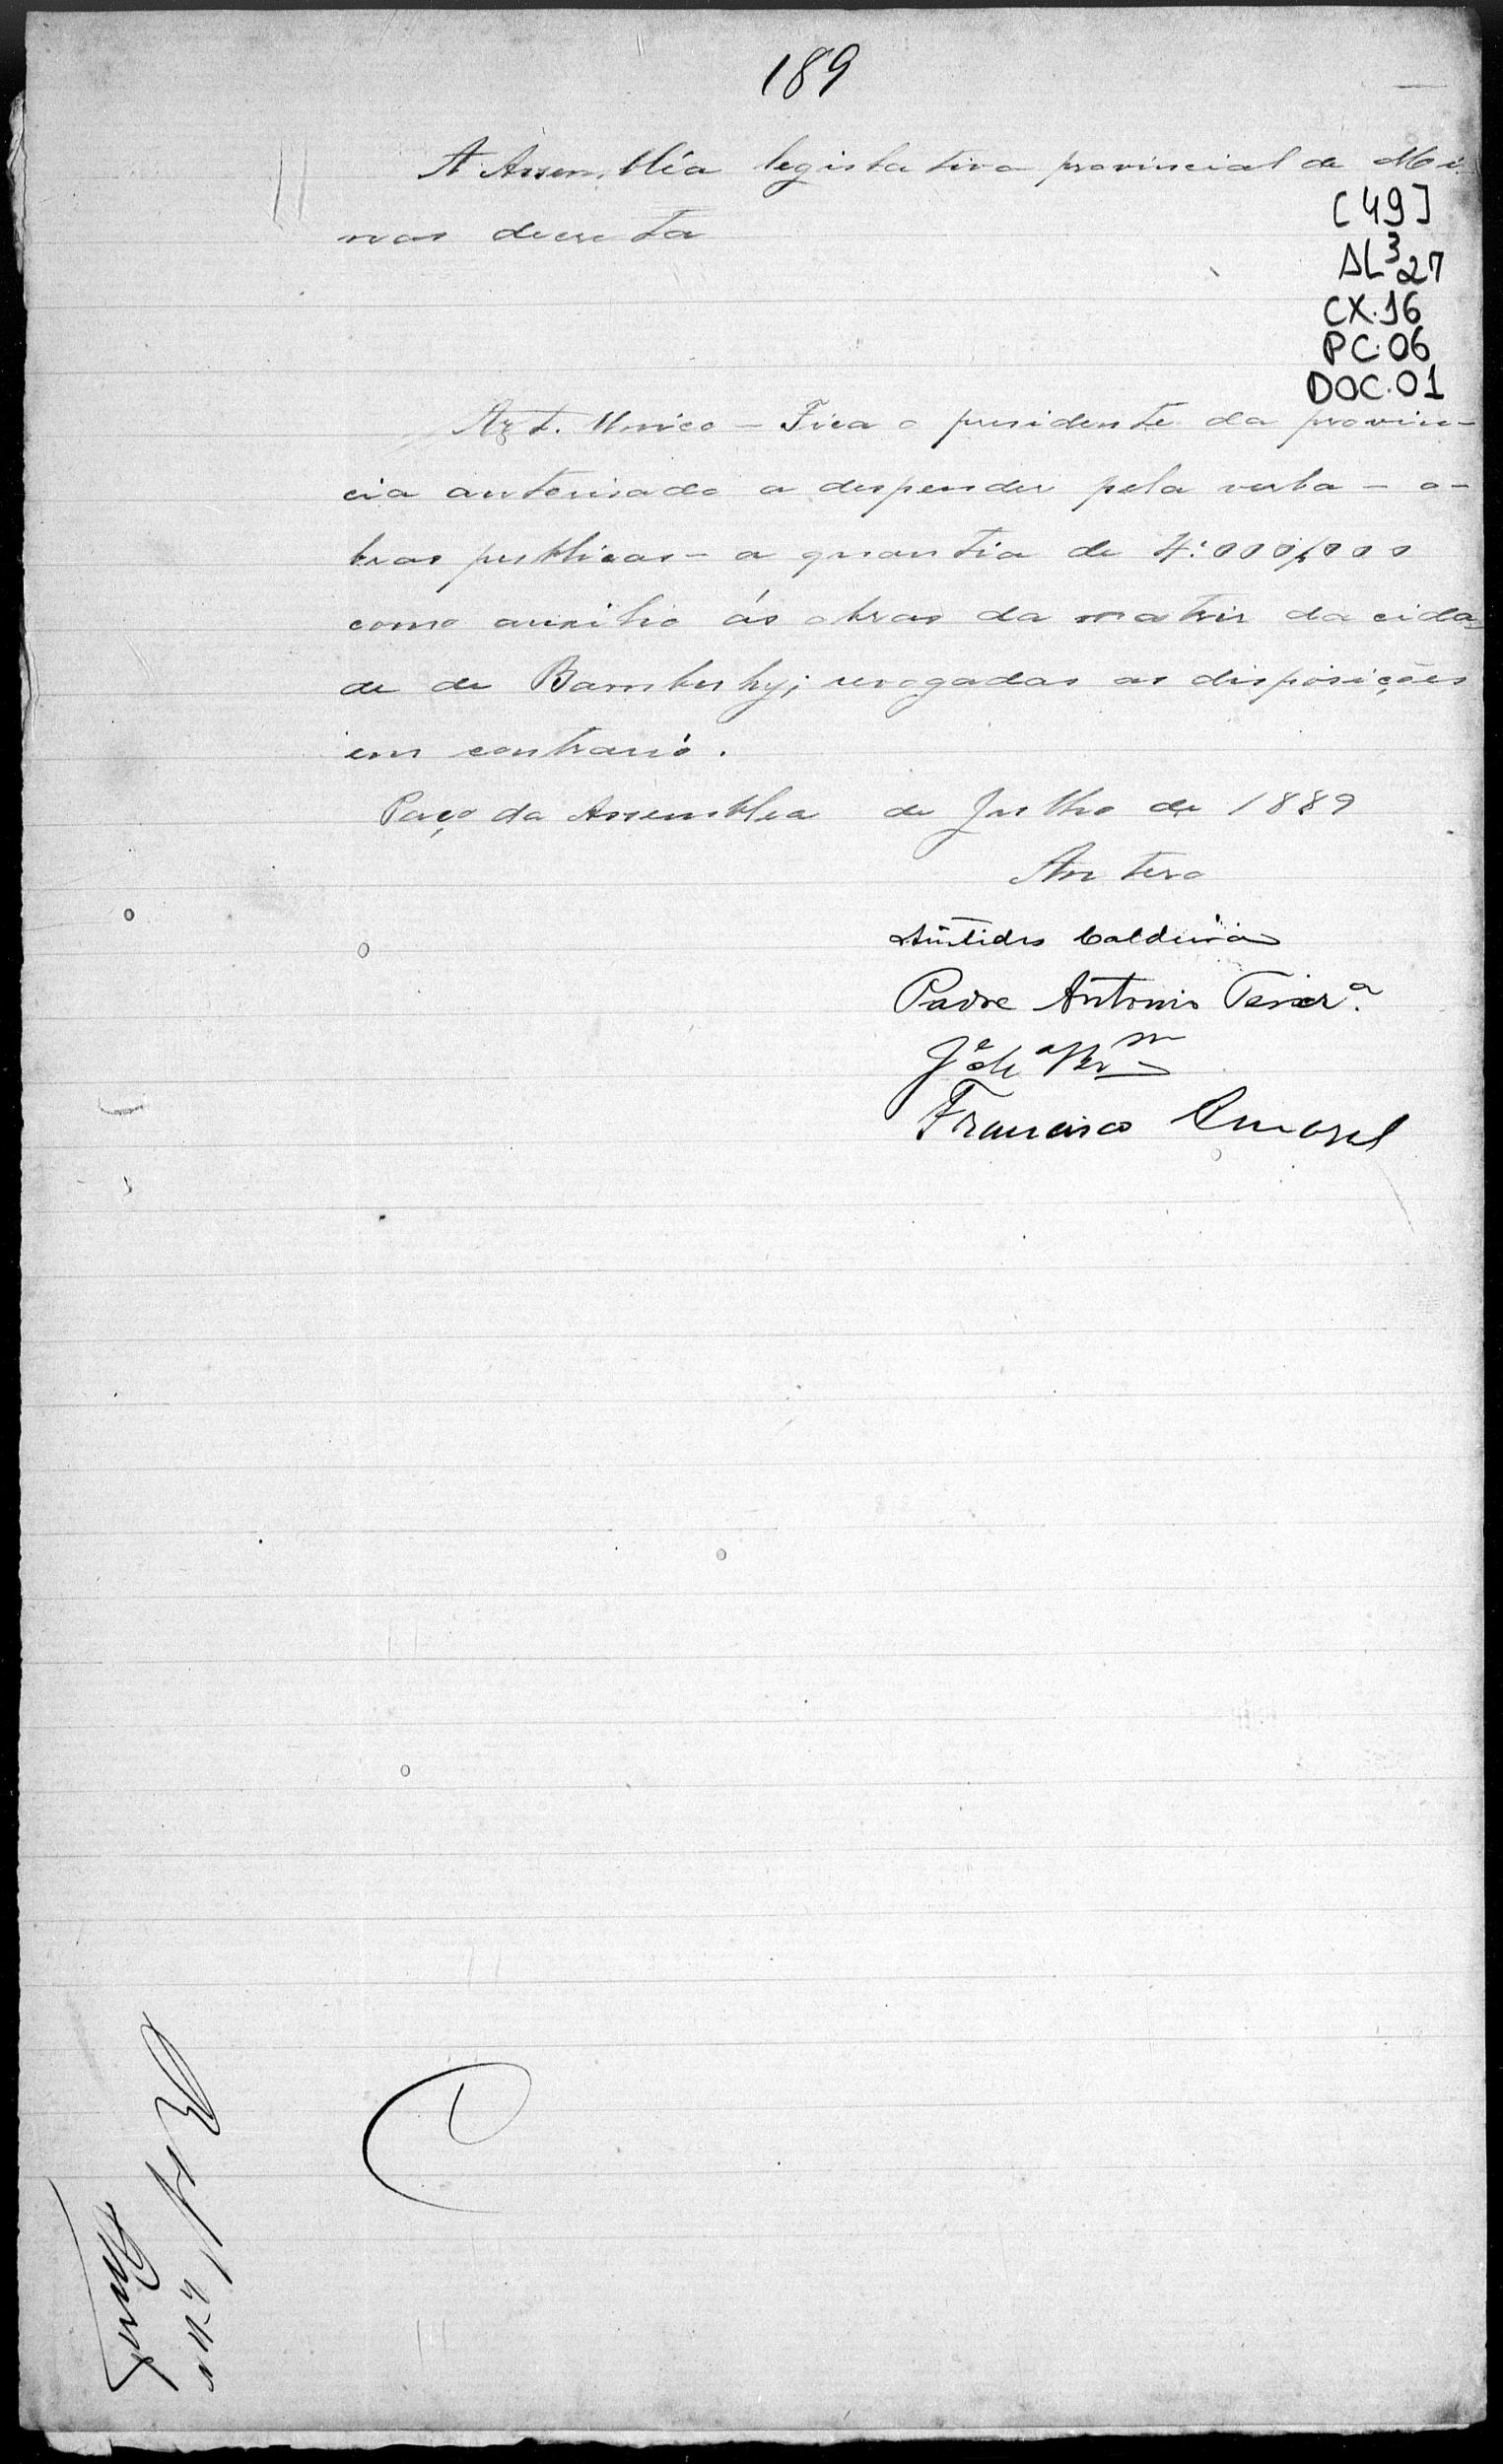 189
A Assembléa legislativa provincial de Mi-
nas decreta
[49]
AL³27
CX.16
PC.06
DOC.01
Art. Unico – Fica o presidente da provin-
cia autorisado a despender pela verba – o-
bras publicas – a quantia de 4:000$000
como auxilio ás obras da matriz da cida-
de de Bambuhy; revogadas as disposições
em contrario.
Paço da Assemblea de Julho de 1889
Antero
Aristides Caldeira
Padre Antonio Teixr.ª
Francisco Amaral